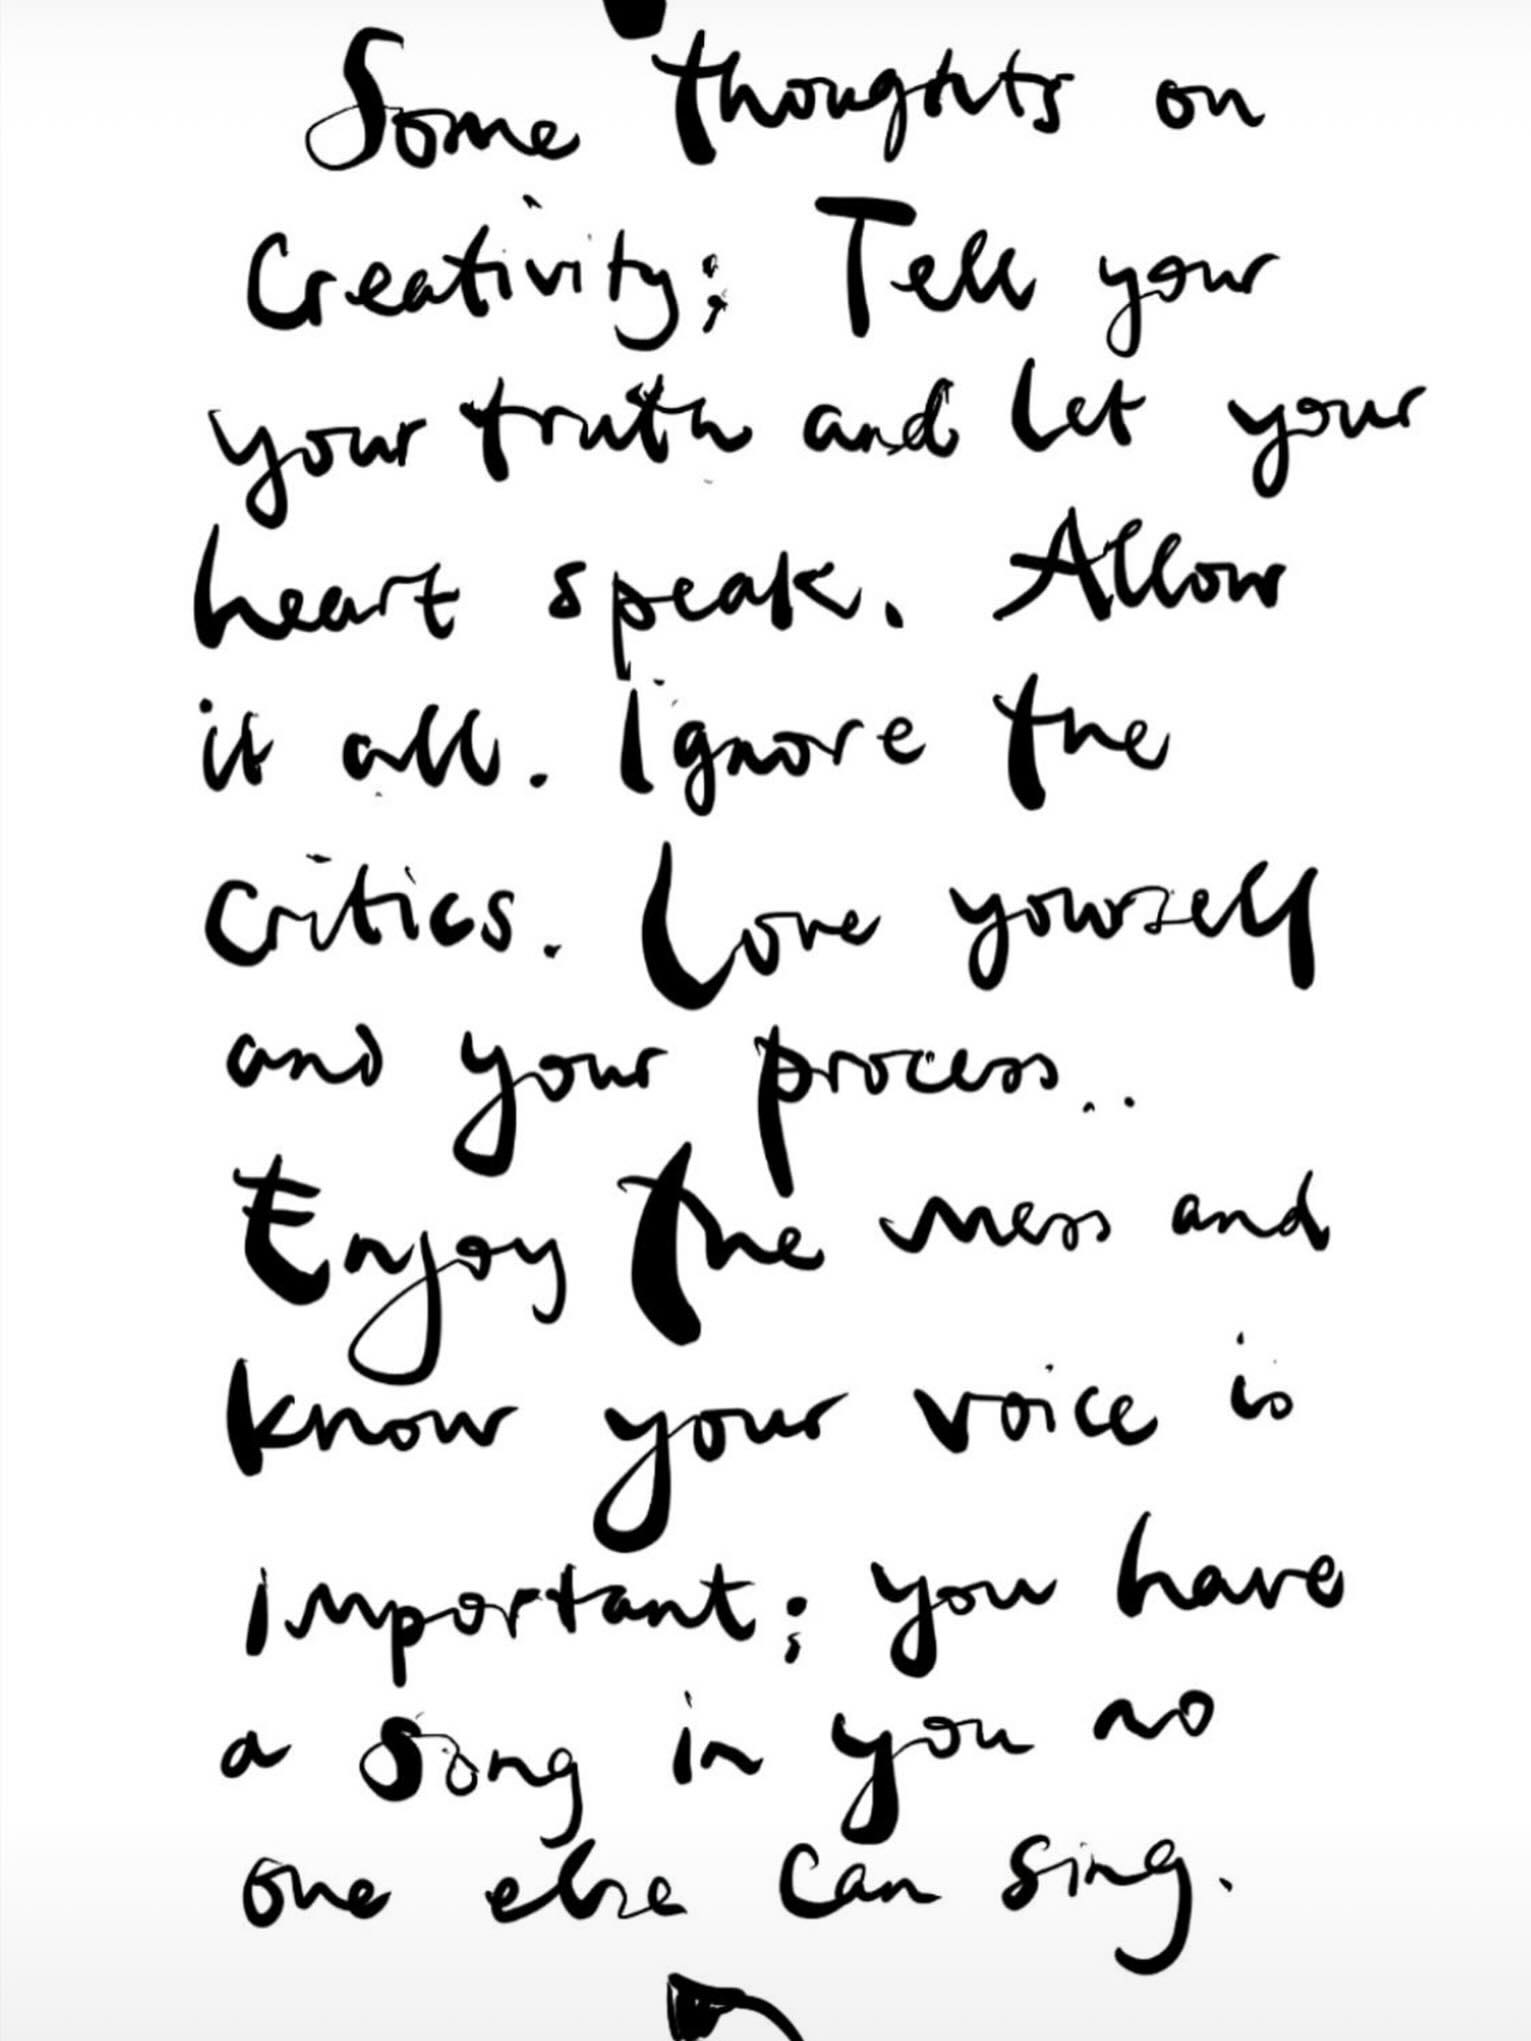 Some thoughts on
Creativity; Tell your
your truth and let your
heart speak. Allow
it all. Ignore the
critics. Love yourself
and your process..
Enjoy the mess and
know your voice is
important; you have
a song in you no
one else can sing.